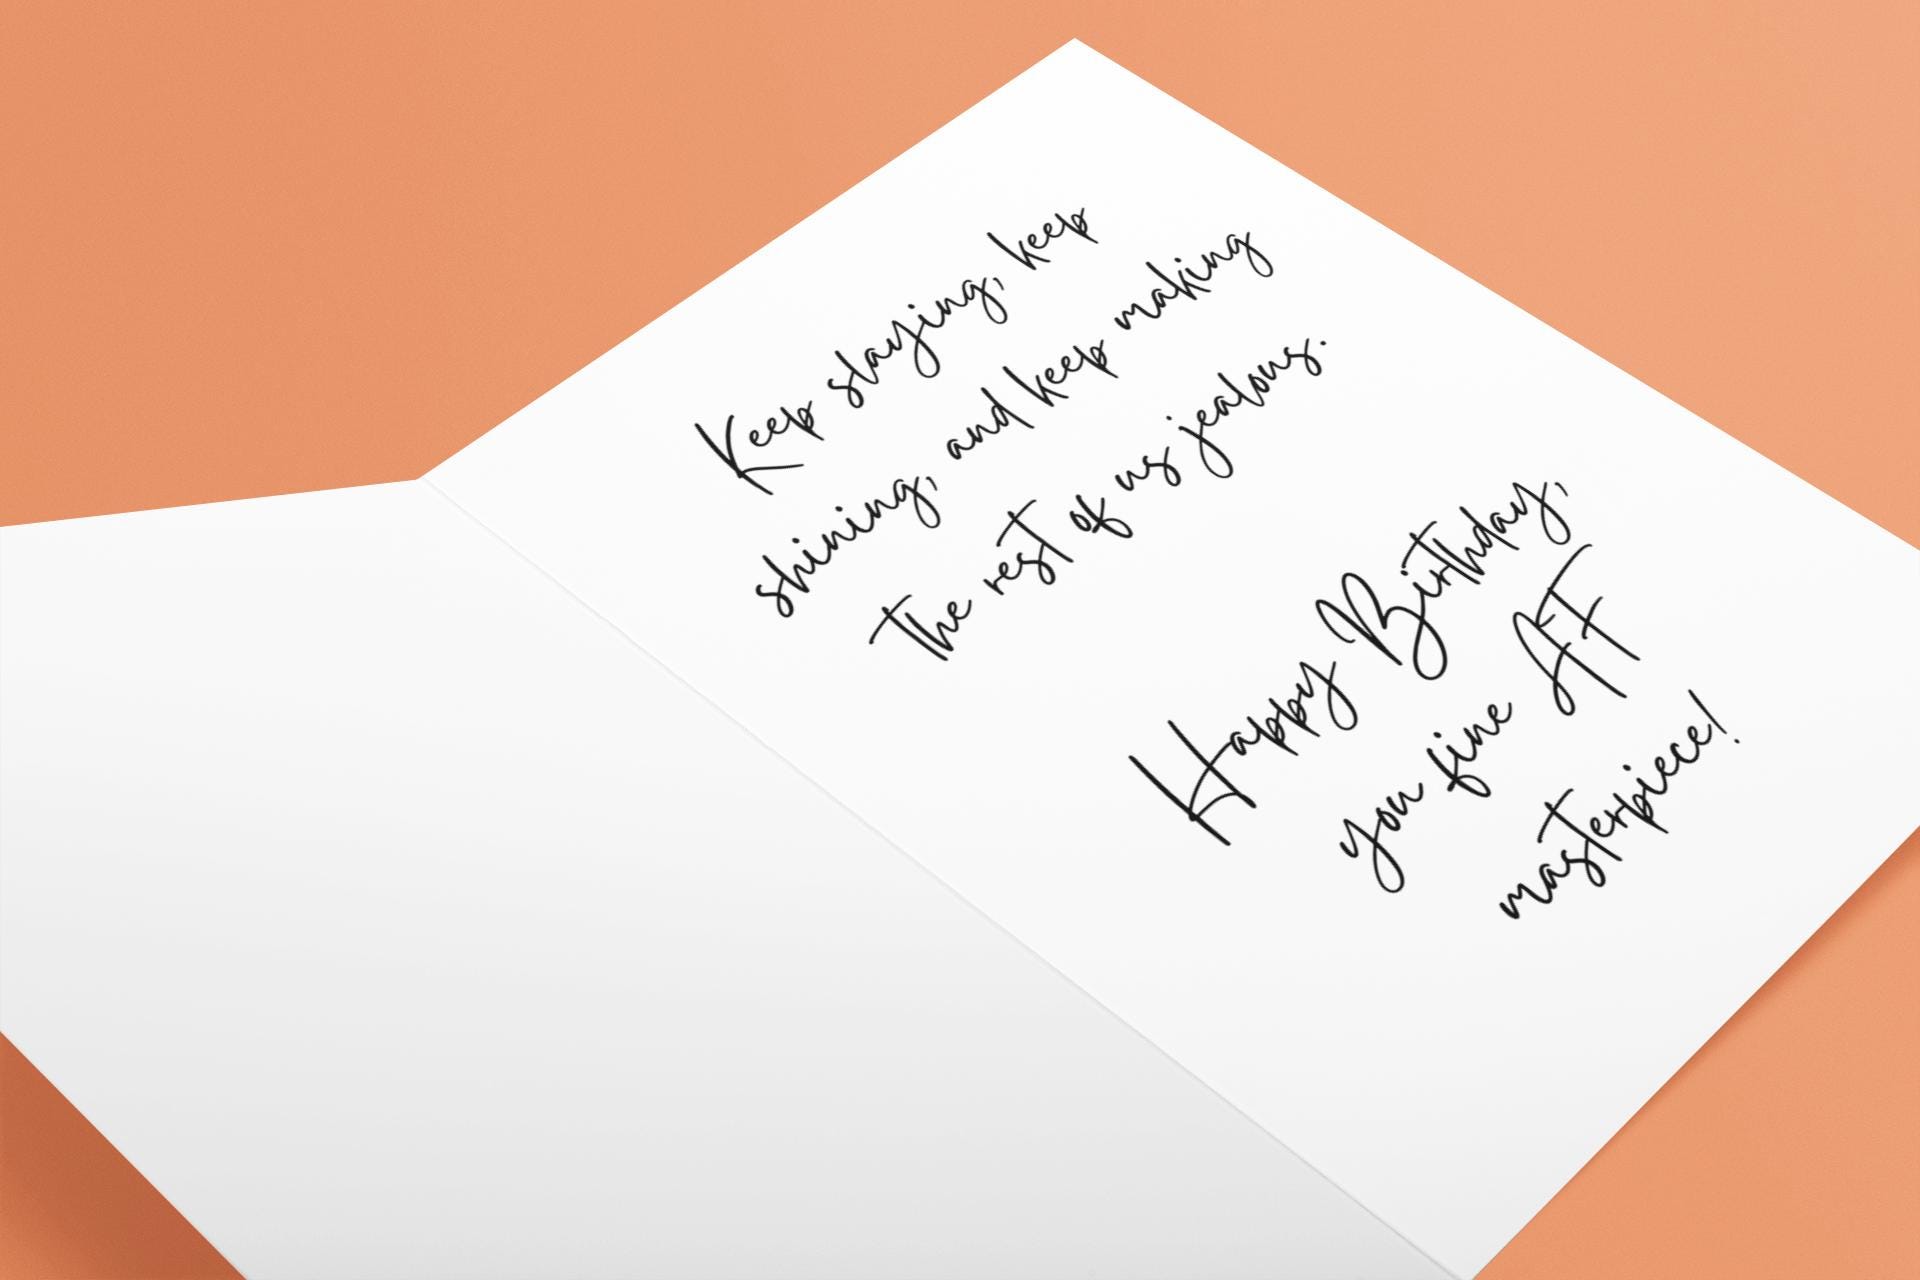 Keep slaying, keep
shining, and keep making
the rest of us jealous.
Happy Birthday,
you fine AF
masterpiece!